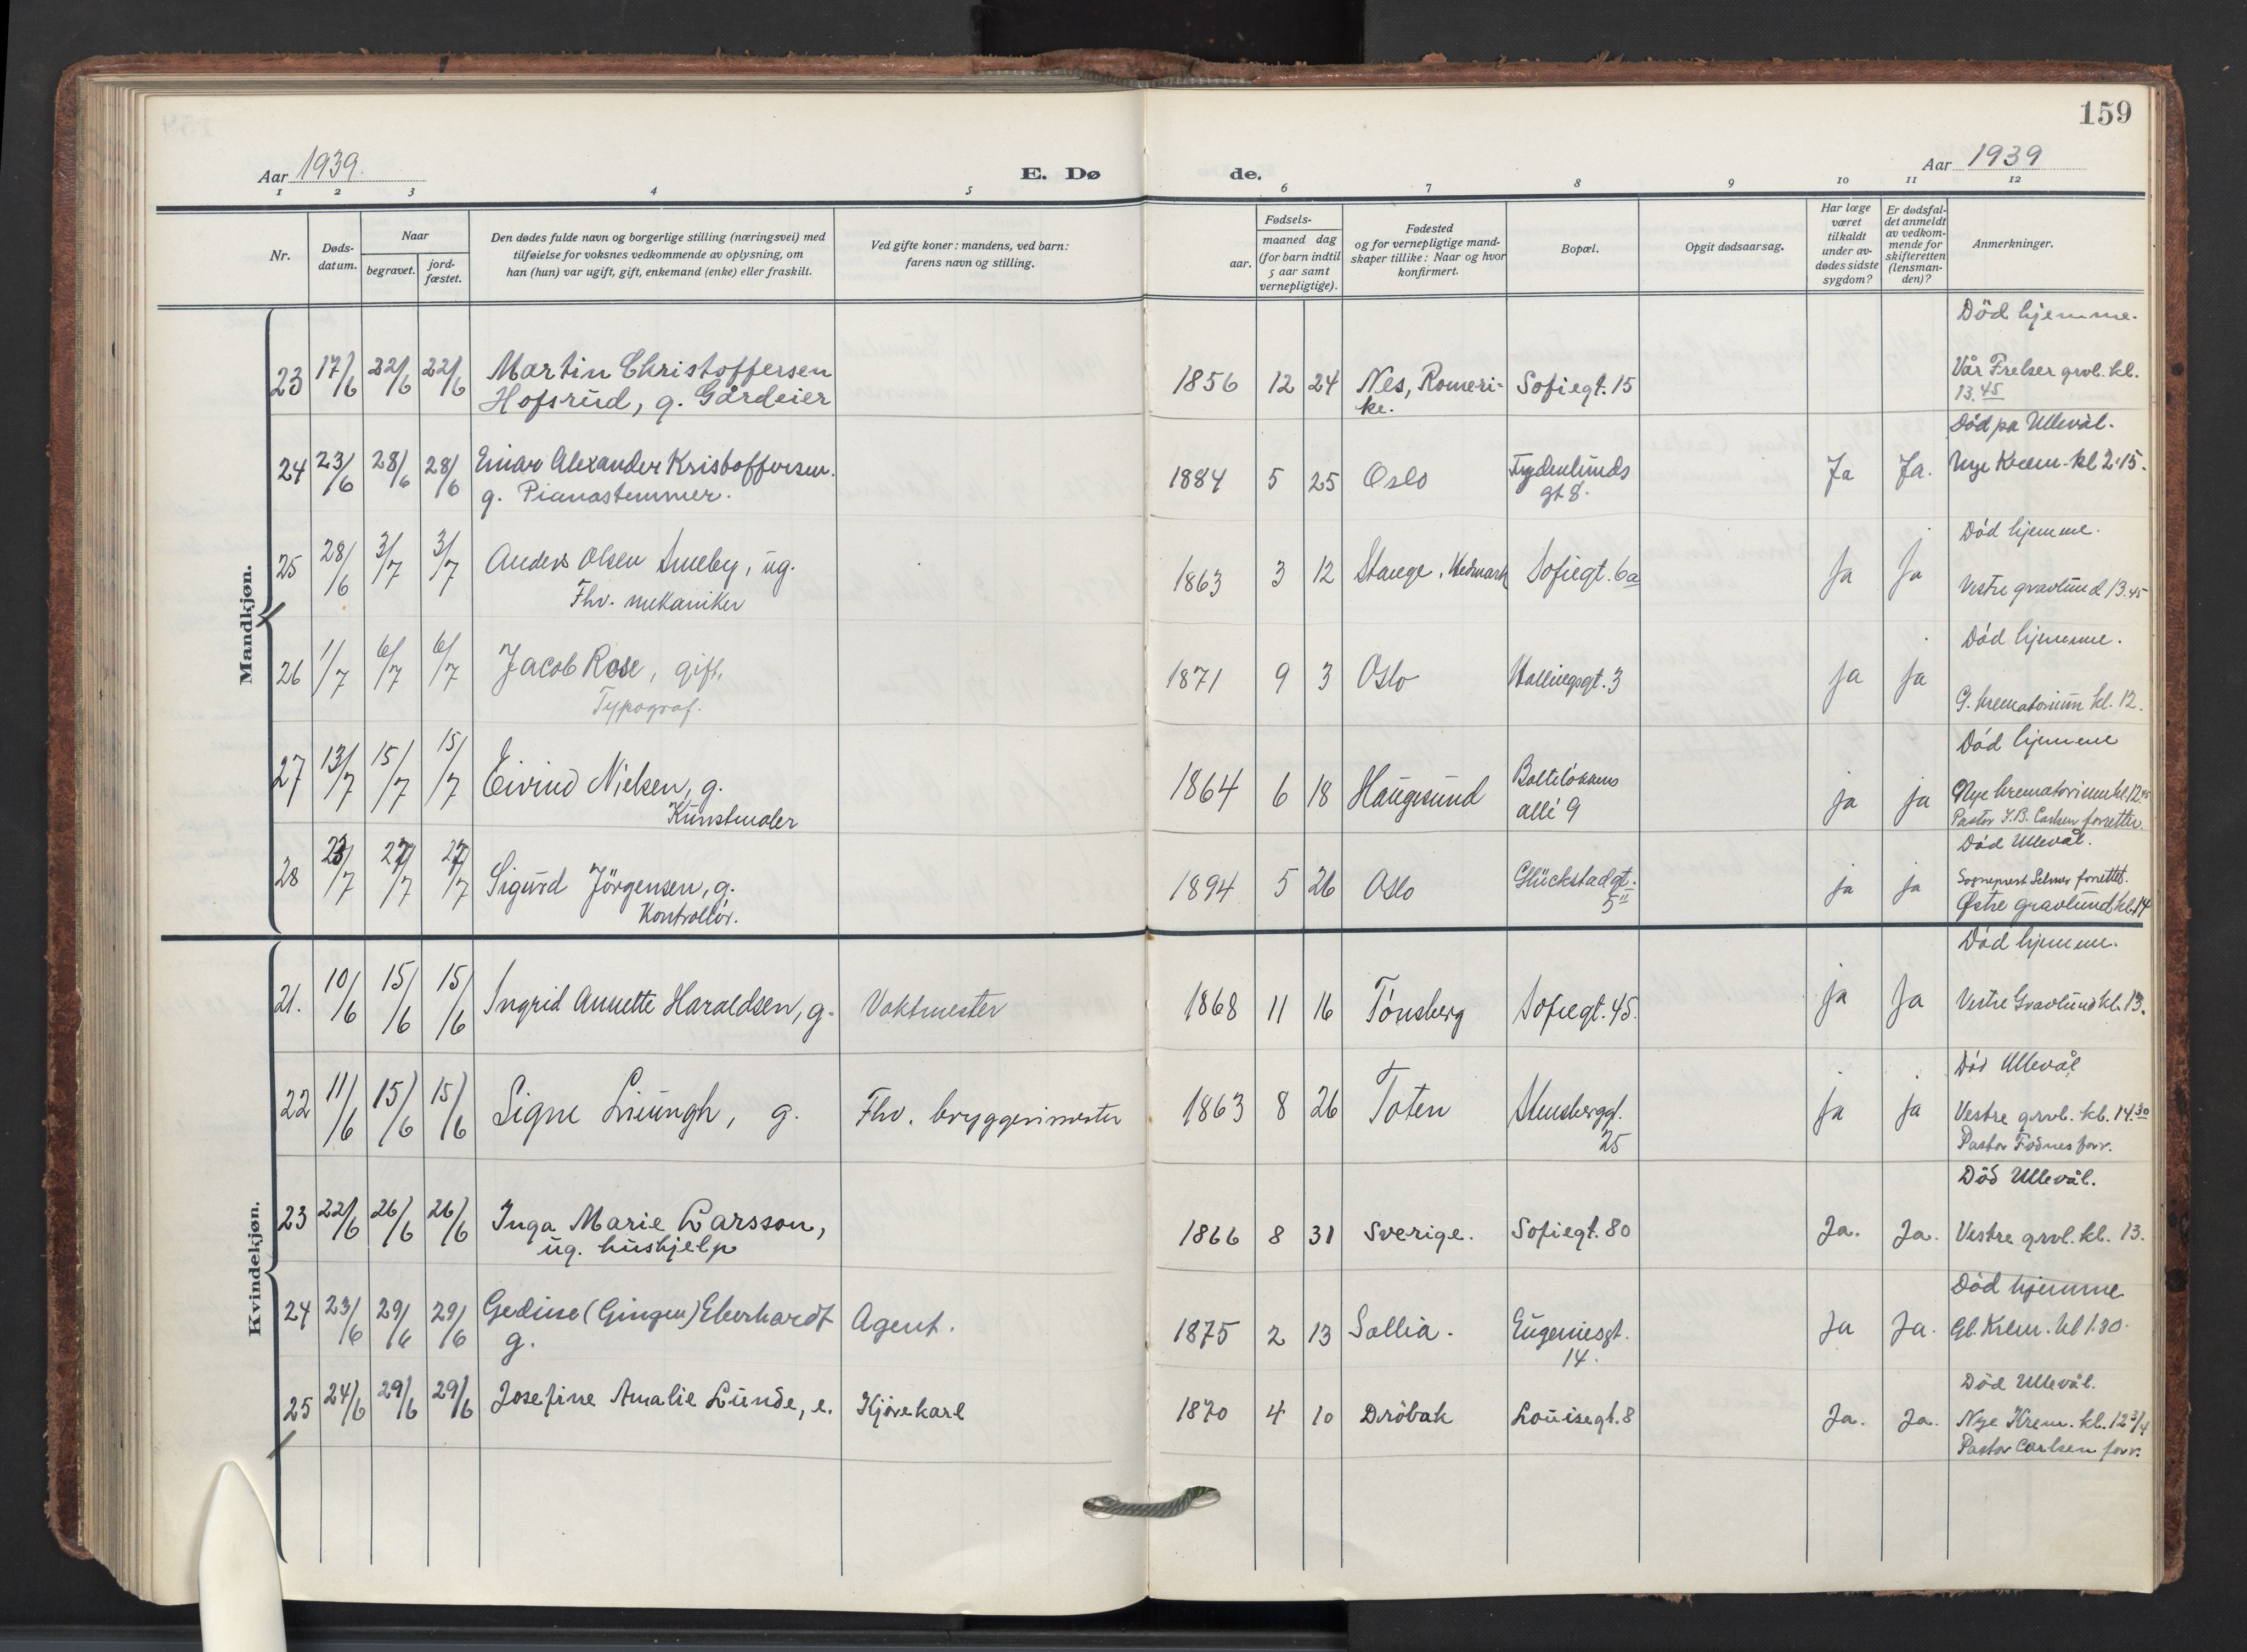 159
Aar 1939.
E. Dø
de.
Aar 1939
1 2 3 4 5 6 7 8 9 10 11 12
Nr.
Døds-
datum.
Naar
begravet.
jord-
fæstet.
Den dødes fulde navn og borgerlige stilling (næringsvei) med
tilføielse for voksnes vedkommende av oplysning, om
han (hun) var ugift, gift, enkemand (enke) eller fraskilt.
Ved gifte koner: mandens, ved barn:
farens navn og stilling.
Fødsels-
aar.
maaned dag
(for barn indtil
5 aar samt
vernepligtige).
Fødested
og for vernepligtige mand-
skaper tillike: Naar og hvor
konfirmert.
Bopæl.
Opgit dødsaarsag.
Har læge
været
tilkaldt
under av-
dødes sidste
sygdom?
Er dødsfal-
det anmeldt
av vedkom-
mende for
skifteretten
(lensman-
den)?
Anmerkninger.
Mandkjøn.
Død hjemme.
23 17/6 22/6 22/6 Martin Christoffersen 1856 12 24 Nes, Romeri- Sofiegt. 15 Vår Frelser grvl. kl.
Hofsrud, g. Gårdeier ke. 13.45
Død på Ullevål.
24 23/6 28/6 28/6 Einar Alexander Kristoffersen. 1884 5 25 Oslo Frydenlunds Ja Ja. Nye Krem. kl 2.15.
g. Pianostemmer. gt 8.
Død hjemme.
25 28/6 3/7 3/7 Anders Olsen Smeby, ug. 1863 3 12 Stange, Hedmark Sofiegt. 6a Ja Ja Vestre gravlund 13.45
Fhv. mekaniker
Død hjemme.
26 1/7 6/7 6/7 Jacob Rose, gift, 1871 9 3 Oslo Hallingsgt. 3 ja ja G. krematorium kl. 12.
Typograf.
Død hjemme
27 13/7 15/7 15/7 Eivind Nielsen, g. 1864 6 18 Haugesund Bolteløkkens ja ja Nye krematorium kl. 12.45
Kunstmaler alle 9 Pastor J.B. Carlsen forretter.
Død Ullevål.
28 23/7 27/7 27/7 Sigurd Jörgensen, g. 1894 5 26 Oslo Glückstadgt. ja ja Sogneprest Selmer forrettet.
Kontrollör. 5" Østre gravlund kl. 14
Kvindekjøn.
Død hjemme.
21. 10/6 15/6 15/6 Ingrid Annette Haraldsen, g. Vaktmester 1868 11 16 Tönsberg Sofiegt. 45. ja Ja Vestre Gravlund kl. 13.
Död Ullevål
22 11/6 15/6 15/6 Signe Liungh, g. Fhv. bryggerimester 1863 8 26 Toten Stensberggt. ja ja Vestre grvl. kl. 14.30
25 Pastor Fodnes forr.
Död Ullevål.
23 22/6 26/6 26/6 Inga Marie Larsson, 1866 8 31 Sverige. Sofiegt. 80 Ja. Ja. Vestre grvl. kl. 13.
ug. hushjelp
Död hjemme
24 23/6 29/6 29/6 Gedine (Gingen) Eberhardt Agent. 1875 2 13 Sollia. Eugeniesgt. Ja Ja. Gl. Krem. kl 1.30.
g. 14.
Död Ullevål.
25 24/6 29/6 29/6 Josefine Amalie Lunde, e. Kjørekarl 1870 4 10 Dröbak Louisegt. 8 Ja. Ja. Nye Krem. kl. 12 3/4
Pastor Carlsen forr.